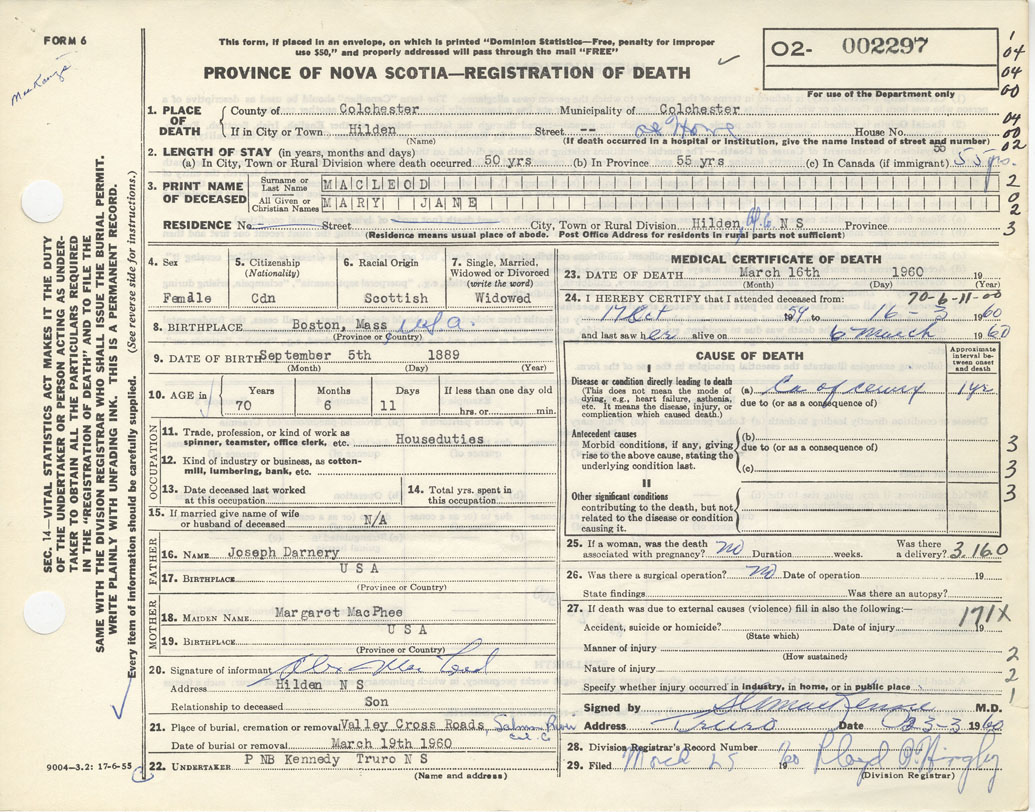 FORM 6
This form, if placed in an envelope, on which is printed "Dominion Statistics—Free, penalty for improper
use $50," and properly addressed will pass through the mail "FREE"
O2- 002297
For use of the Department only
PROVINCE OF NOVA SCOTIA—REGISTRATION OF DEATH
1
04
04
00
04
00
02
2
0
2
3
SEC. 14—VITAL STATISTICS ACT MAKES IT THE DUTY
OF THE UNDERTAKER OR PERSON ACTING AS UNDER-
TAKER TO OBTAIN ALL THE PARTICULARS REQUIRED
IN THE "REGISTRATION OF DEATH" AND TO FILE THE
SAME WITH THE DIVISION REGISTRAR WHO SHALL ISSUE THE BURIAL PERMIT.
WRITE PLAINLY WITH UNFADING INK. THIS IS A PERMANENT RECORD.
Every item of information should be carefully supplied. (See reverse side for instructions.)
1. PLACE OF DEATH County of Colchester Municipality of Colchester
If in City or Town Hilden Street -- at Home House No.
(Name) (If death occurred in a hospital or Institution, give the name instead of street and number)
2. LENGTH OF STAY (in years, months and days)
(a) In City, Town or Rural Division where death occurred 50 yrs (b) In Province 55 yrs (c) In Canada (if immigrant) 55 yrs.
3. PRINT NAME OF DECEASED Surname or Last Name MACLEOD
All Given or Christian Names MARY JANE
RESIDENCE No. Street City, Town or Rural Division Hilden, Col. Co N S Province
(Residence means usual place of abode. Post Office Address for residents in rural parts not sufficient)
4. Sex Female
5. Citizenship (Nationality) Cdn
6. Racial Origin Scottish
7. Single, Married, Widowed or Divorced (write the word) Widowed
8. BIRTHPLACE Boston, Mass U.S.A.
(Province or Country)
9. DATE OF BIRTH September 5th 1889
(Month) (Day) (Year)
10. AGE in Years 70 Months 6 Days 11 If less than one day old hrs. or min.
OCCUPATION
11. Trade, profession, or kind of work as spinner, teamster, office clerk, etc. Houseduties
12. Kind of industry or business, as cotton-mill, lumbering, bank, etc.
13. Date deceased last worked at this occupation
14. Total yrs. spent in this occupation
15. If married give name of wife or husband of deceased N/A
FATHER
16. NAME Joseph Darnery
17. BIRTHPLACE U S A
(Province or Country)
MOTHER
18. MAIDEN NAME Margaret MacPhee
19. BIRTHPLACE U S A
(Province or Country)
20. Signature of informant Alex MacLeod
Address Hilden N S
Relationship to deceased Son
21. Place of burial, cremation or removal Valley Cross Roads, Salmon River Col. Co
Date of burial or removal March 19th 1960
22. UNDERTAKER P NB Kennedy Truro N S
(Name and address)
9004—3.2: 17-6-55
MEDICAL CERTIFICATE OF DEATH
23. DATE OF DEATH March 16th 1960 19
(Month) (Day) (Year)
70-6-11-00
24. I HEREBY CERTIFY that I attended deceased from:
17 Oct 1959 to 16-3 1960
and last saw her alive on 6 March 1960
CAUSE OF DEATH
Approximate interval between onset and death
I
Disease or condition directly leading to death
(This does not mean the mode of dying, e.g., heart failure, asthenia, etc. It means the disease, injury, or complication which caused death.)
(a) Ca of cervix 1 yr
due to (or as a consequence of)
Antecedent causes
Morbid conditions, if any, giving rise to the above cause, stating the underlying condition last.
(b)
due to (or as a consequence of)
(c)
3
3
3
II
Other significant conditions
contributing to the death, but not related to the disease or condition causing it.
25. If a woman, was the death associated with pregnancy? no Duration weeks. Was there a delivery? 3.160
26. Was there a surgical operation? no Date of operation 19
State findings Was there an autopsy?
27. If death was due to external causes (violence) fill in also the following:—
171X
Accident, suicide or homicide? Date of injury 19
(State which)
Manner of injury 2
(How sustained)
Nature of injury 2
Specify whether injury occurred in industry, in home, or in public place 1
Signed by MacKenzie M.D.
Address Truro Date 23-3 1960
28. Division Registrar's Record Number
29. Filed March 25 1960 Lloyd
(Division Registrar)